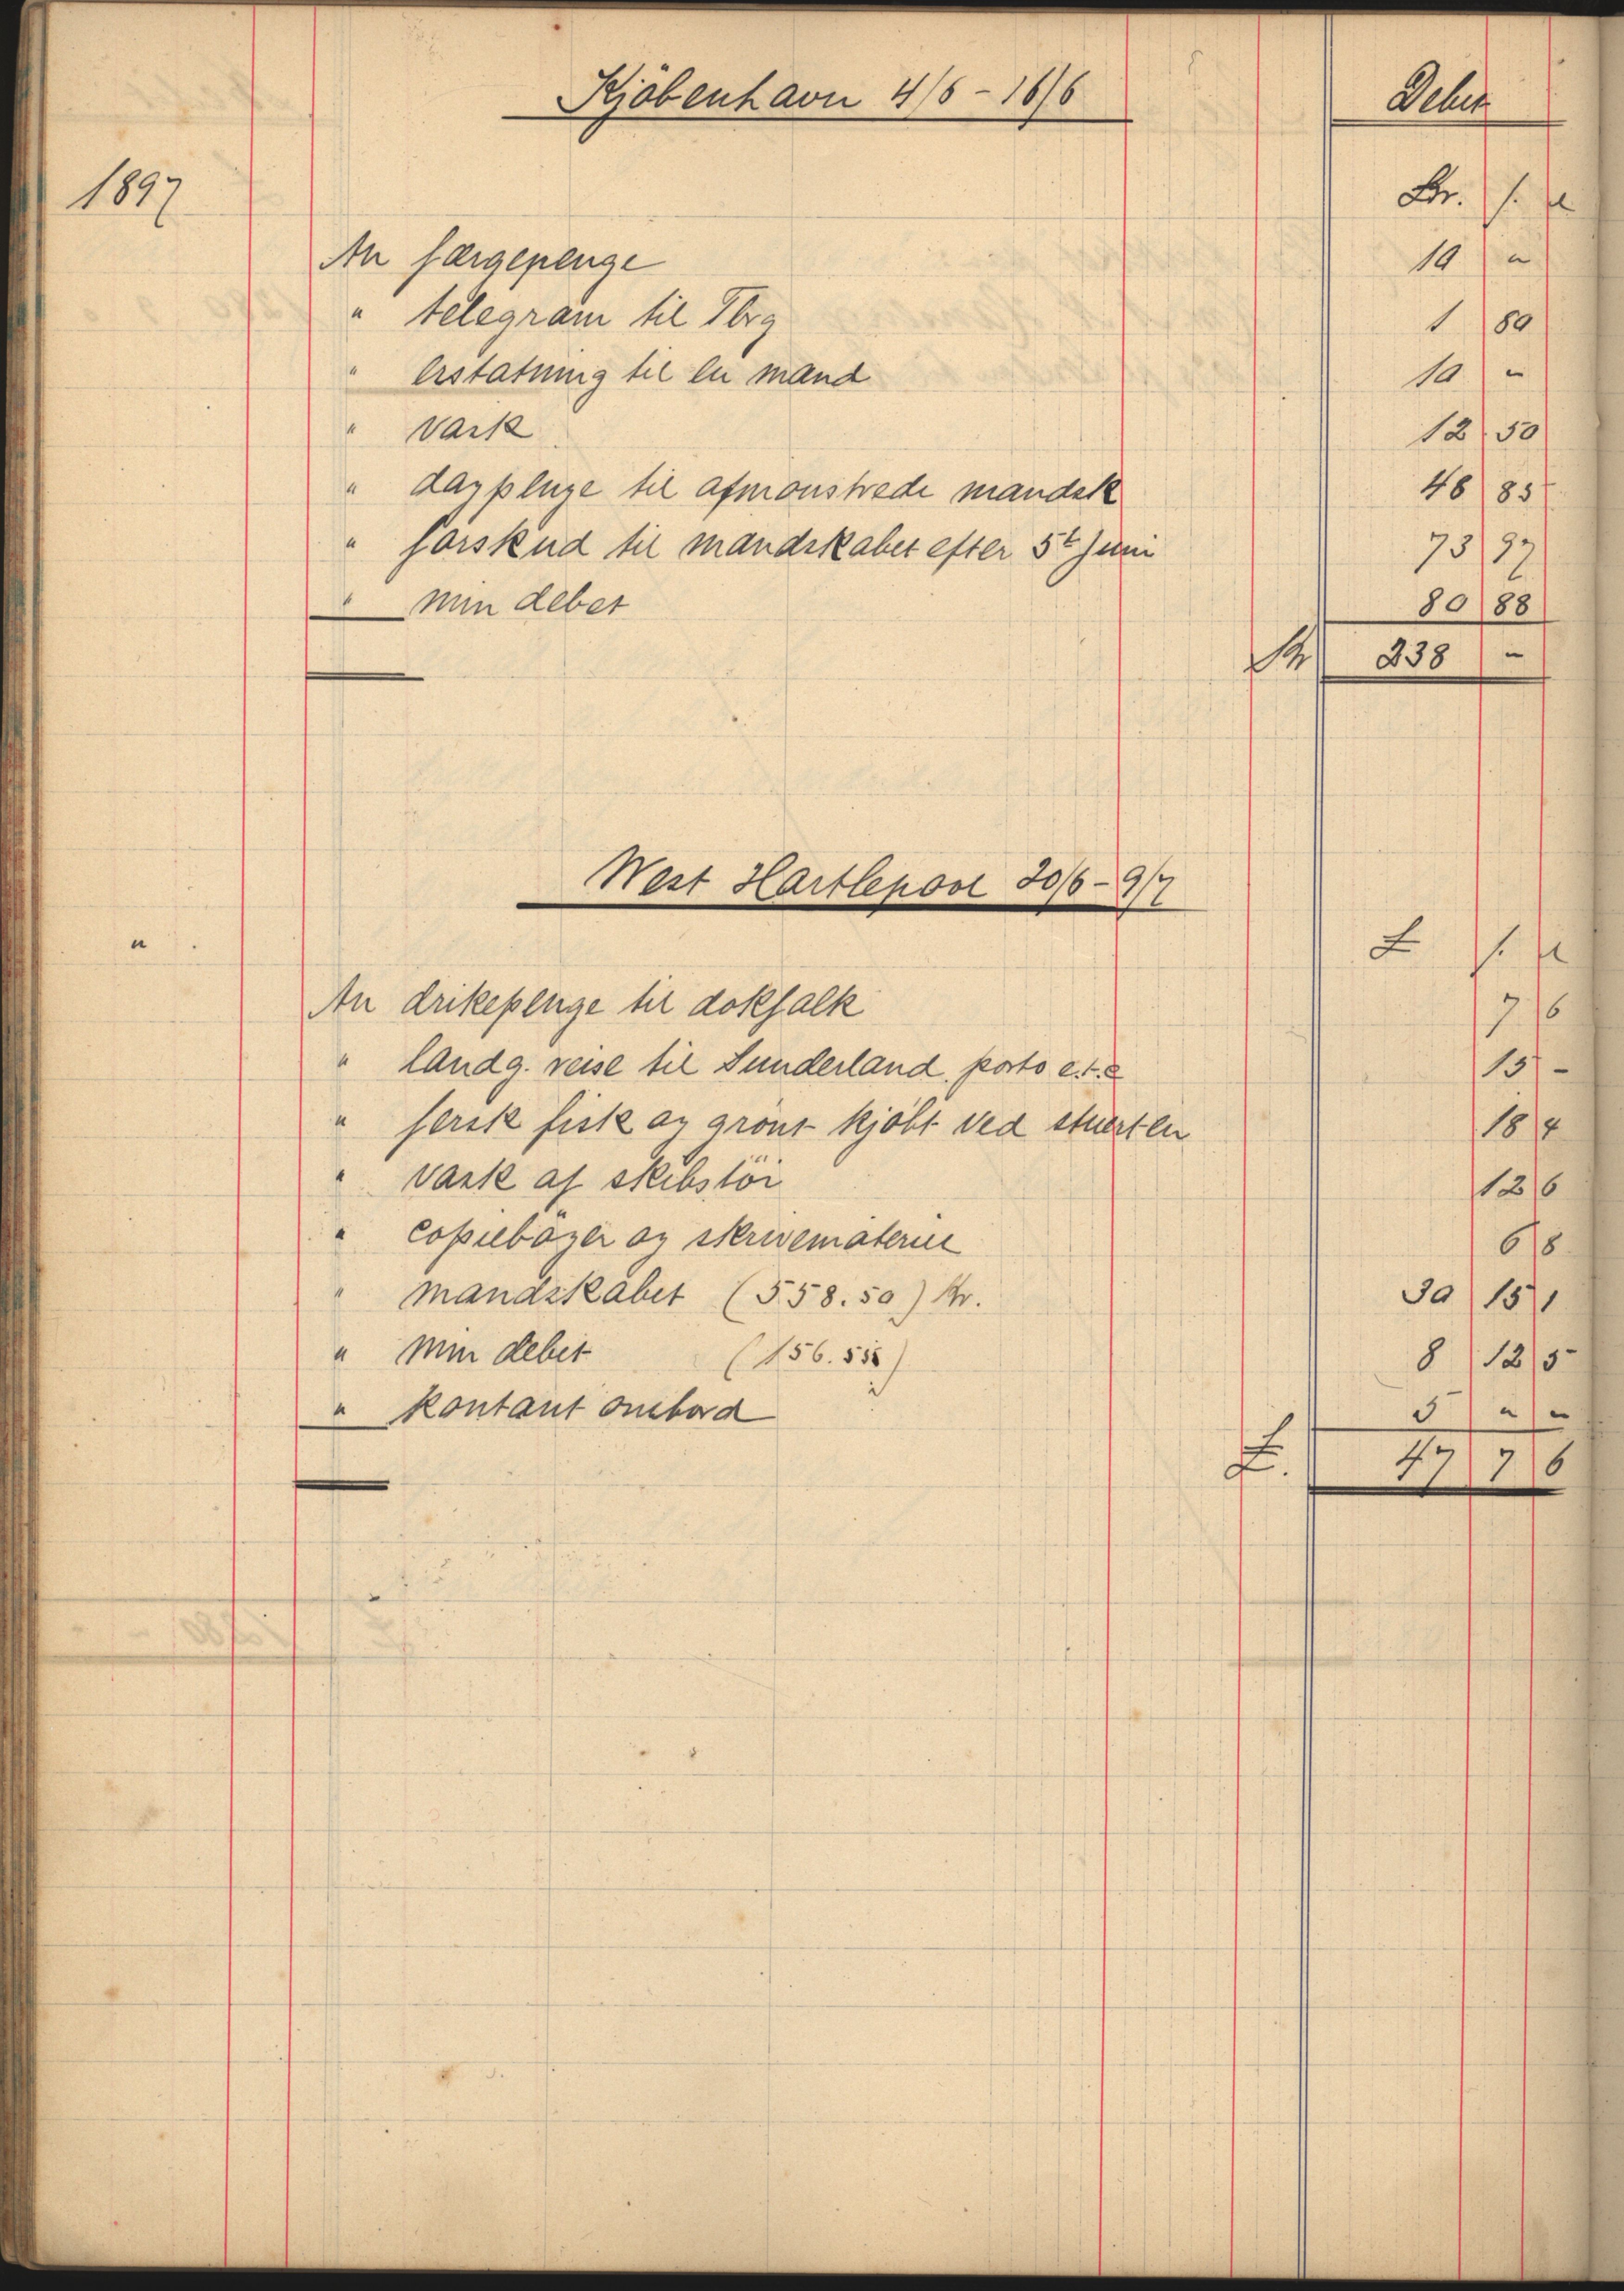 Kjöbenhavn 4/6 - 16/6 Debet
1897 Kr. s. p
An færgepenge 10 "
" telegram til Tbrg 1 80
" Erstatning til en mand 10 "
" vask 12 50
" dagpenge til afmönstrede mandsk 48 85
" forskud til mandskabet efter 5t Juni 73 97
" min debet 80 88
Kr 238 "
West Hartlepool 20/6 - 9/7
" £ s. p
An drikepenge til dokfolk 7 6
" landg. reise til Sunderland, porto e.t.c 15 -
" fersk fisk og grönt kjöbt ved stuerten 18 4
" vask af skibstöi 12 6
" copiebøger og skrivematerie 6 8
" mandskabet (558.50) Kr. 30 15 1
" min debet (156.55) 8 12 5
" kontant ombord 5 " "
£. 47 7 6